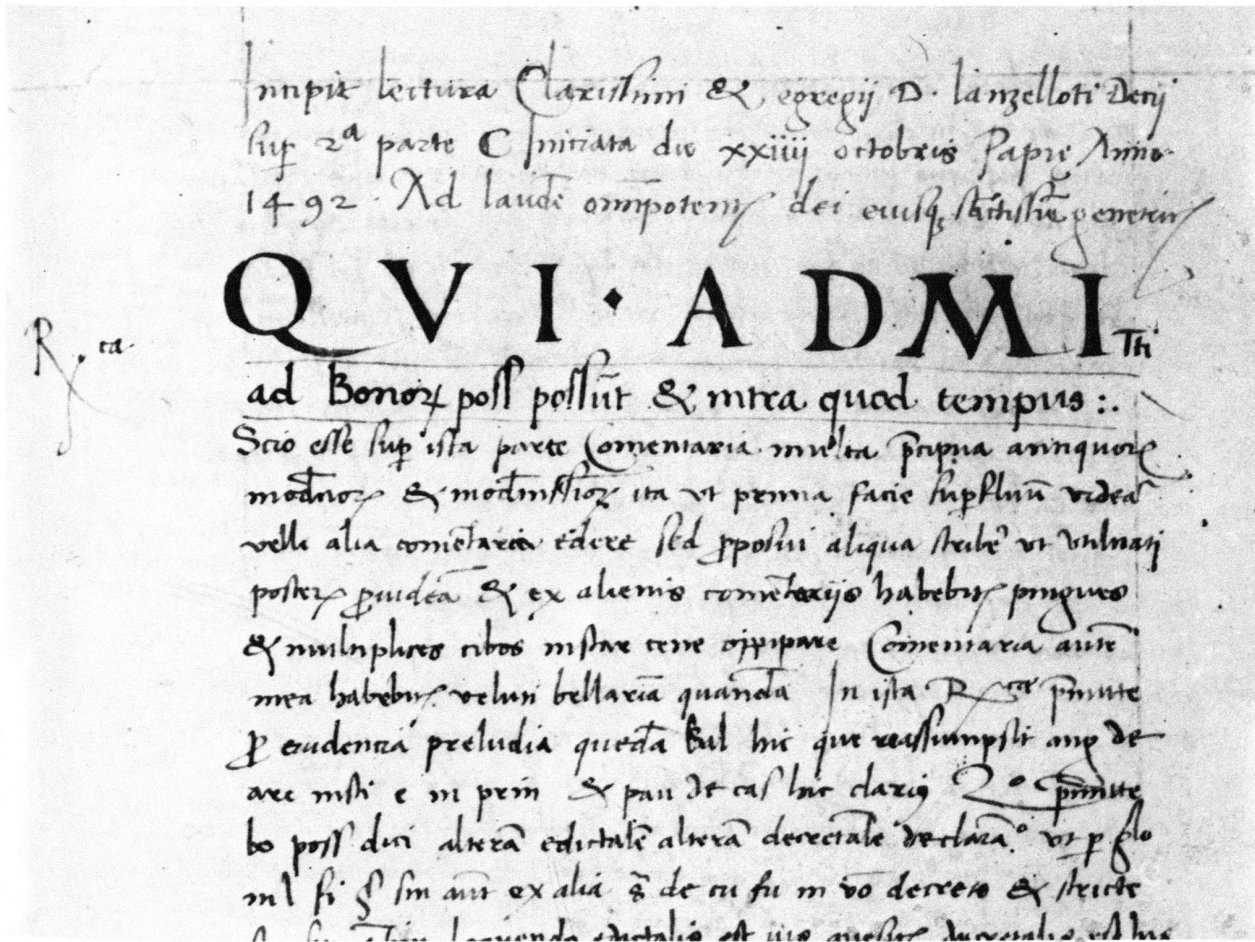 Incipit lectura Clarissimi & egregij D. lanzelloti Decij
sup 2ª parte C Initiata die xxiiii octobris Papie Anno
1492. Ad laudē omīpotentꝭ dei eiusqꝫ sāctissīe genetricꝭ
QVI · ADMI
tti
Rca
ad Bonorꝝ poss possūt & intra quod tempus :.
Scio esse sup ista parte Comentaria multa p̄cipua antiquorꝝ
modniorꝝ & modnissiorꝝ ita vt prima facie supfluū videaᷓ
velle alia comētaria edere sed ꝓposui aliqua scribē vt vtilitati
posterꝝ ꝓuideā & ex alienis comētarijs habebitꝭ pingues
& multiplices cibos instar cene opipare Comentaria autē
mea habebitꝭ veluti bellaria quandā In ista Rca p̄mitte
ꝓ euidentia preludia quedā Bal hic que reassumpsit ang de
are insti e in prin & pau de cas hic clariꝰ 2º p̄mitte
bo poss dici alterā edictalē alterā decretalē declaraº vt p glo
in l fi § sin aūt ex alia de cu fu in vō decreto & stricte
edictalis est ius decretalis est